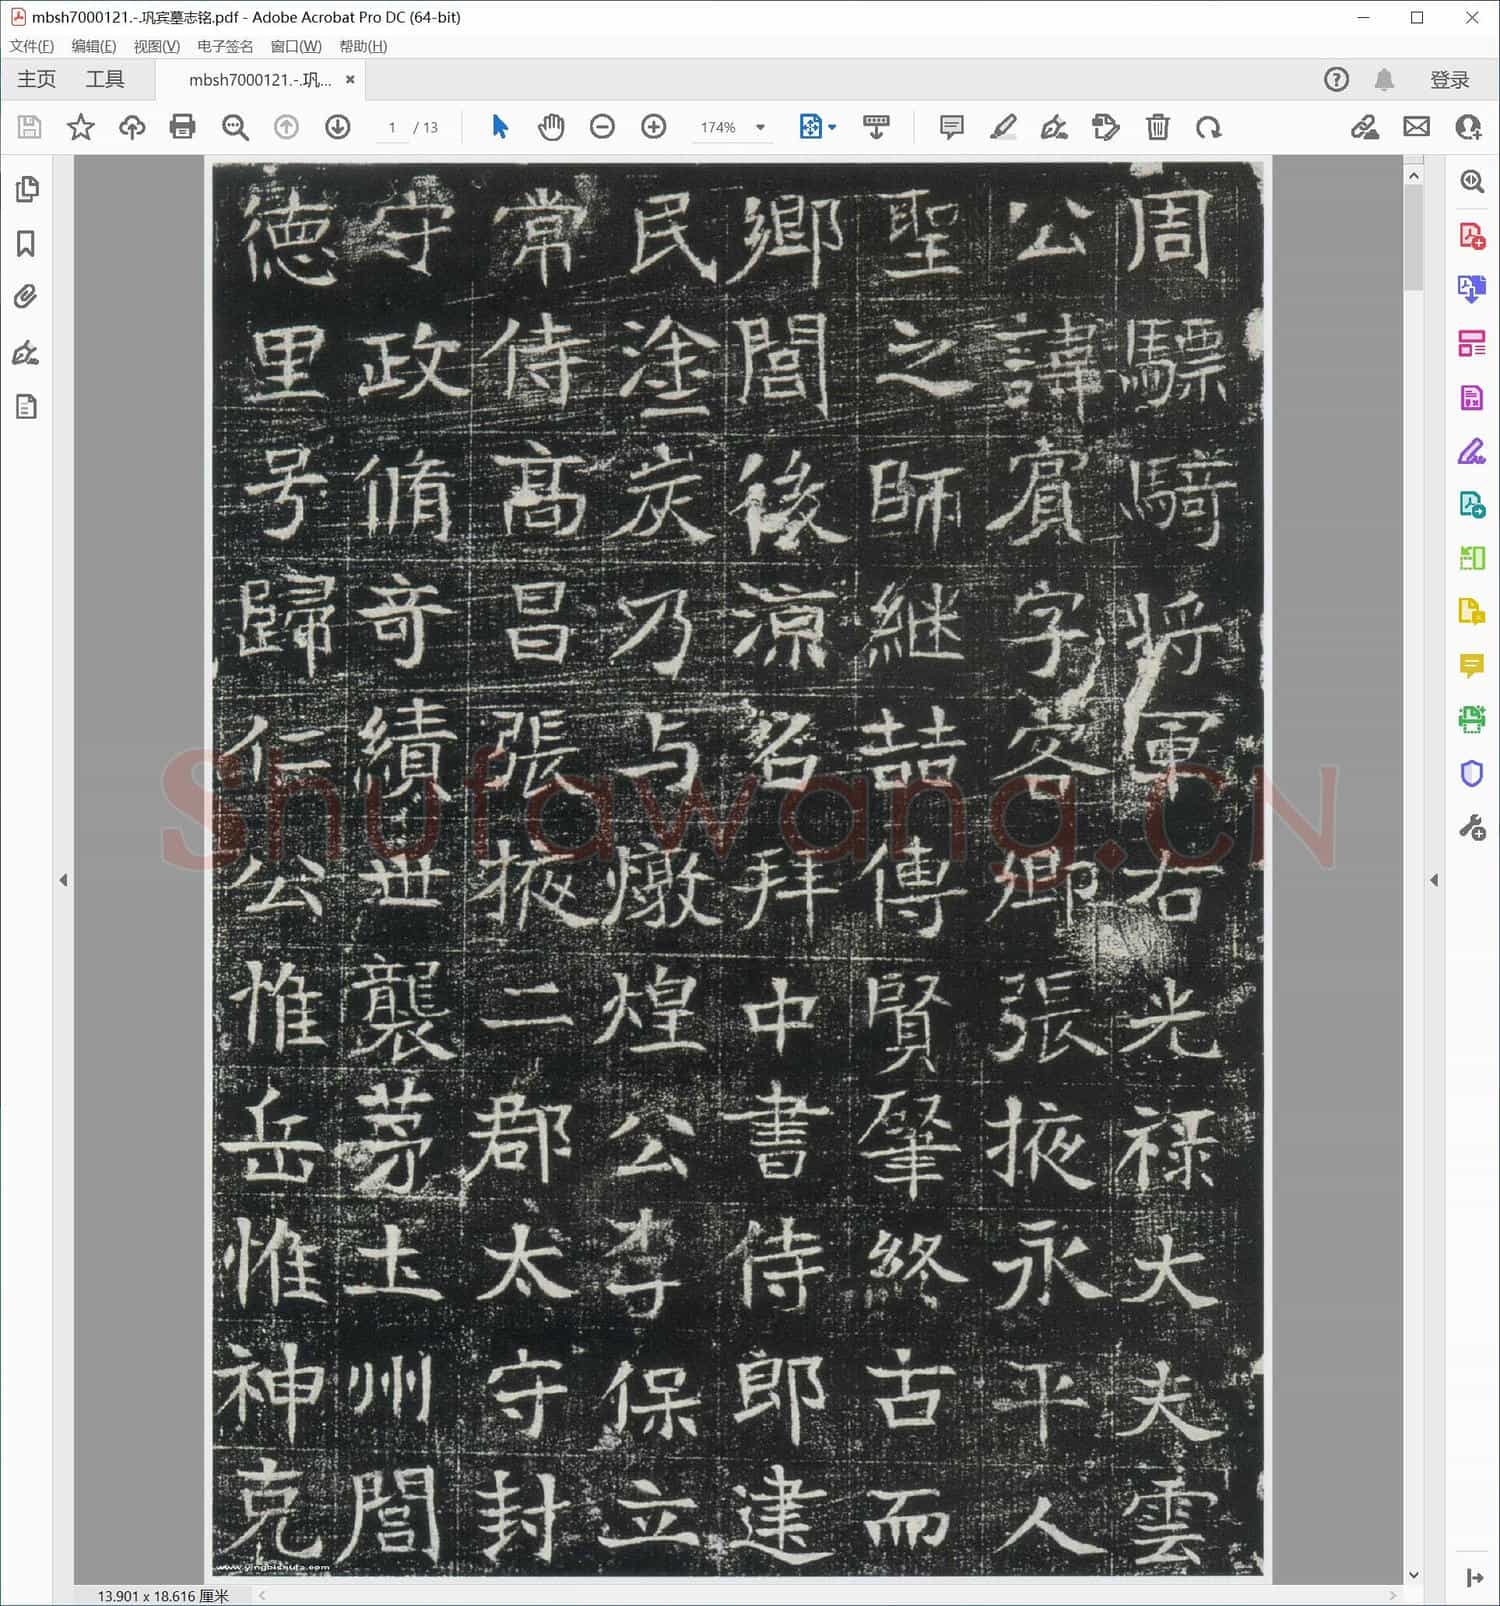 mbsh7000121.-.巩宾墓志铭.pdf - Adobe Acrobat Pro DC (64-bit)
文件(F) 编辑(E) 视图(V) 电子签名 窗口(W) 帮助(H)
主页 工具 mbsh7000121.-.巩... × 登录
1 / 13 174%
周驃騎将軍右光禄大夫雲
公諱賓字客卿張掖永平人
聖之師継喆傳賢肇終古而
鄉閭後涼召拜中書侍郎建
民塗炭乃与燉煌公李保立
常侍髙昌張掖二郡太守封
守政脩竒績丗襲茅土州閭
徳里号歸仁公惟岳惟神克
Shufawang.CN
www.yingbishufa.com
13.901 x 18.616 厘米